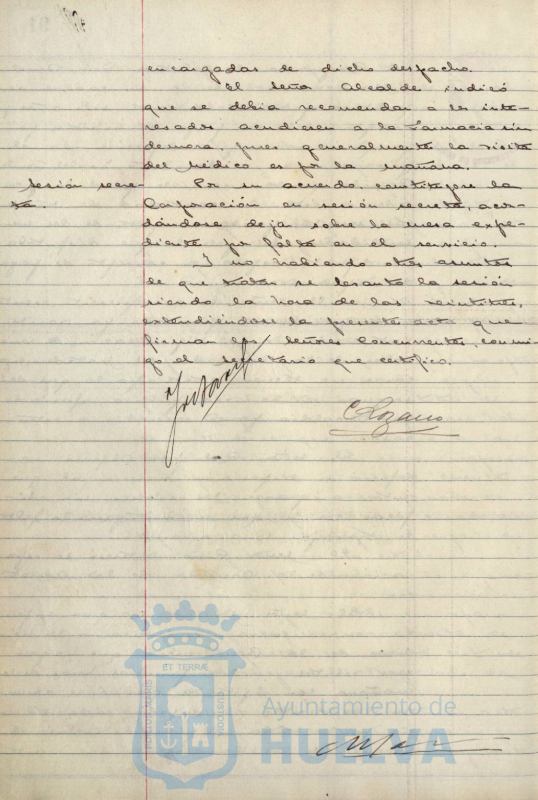 encargadas de dicho despacho.
El Señor Alcalde indicó
que se debía recomendar a los inte-
resados acudiesen a la Farmacia sin
demora, pues generalmente la visita
del Médico es por la mañana.
Sesión secre-
ta.
Por su acuerdo, constituyose la
Corporación en sesión secreta, acor-
dándose dejar sobre la mesa expe-
diente por falta en el servicio.
Y no habiendo otros asuntos
de que tratar se levantó la sesión
siendo la hora de las veintitres,
extendiéndose la presente acta que
firman los Señores Concurrentes, conmi-
go el Secretario que certifico.
C Lozano
PORTUS MARIS
ET TERRÆ
CUSTODIA
Ayuntamiento de
HUELVA